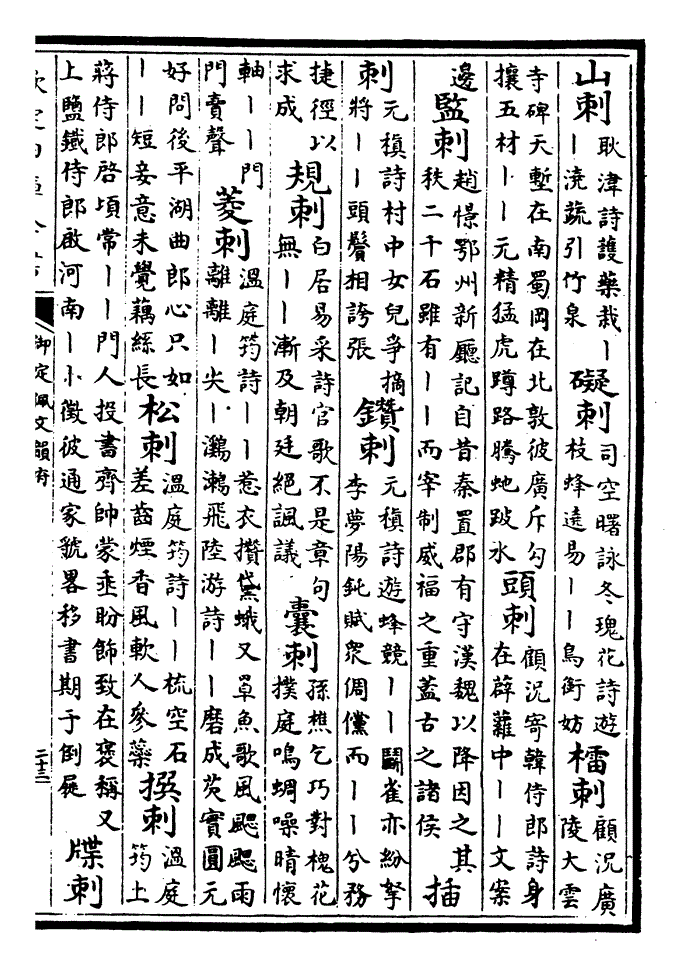 山刺耿湋詩護藥栽丨丨澆蔬引竹泉礙刺司空曙詠冬瑰花詩遊枝蜂遶易丨丨鳥銜妨橊刺顧況廣陵大雲
寺碑天塹在南蜀岡在北敦彼廣斥勾攘五材丨丨元精猛虎蹲路騰虵跋水頭刺顧況寄韓侍郎詩身在薜蘿中丨丨文案
邊監刺趙憬鄂州新廳記自昔秦置郡有守漢魏以降因之其秩二千石雖有丨丨而宰制威福之重蓋古之諸侯插
刺元稹詩村中女兒爭摘將丨丨頭鬢相誇張鑽刺元稹詩遊蜂競丨丨鬬雀亦紛拏李夢陽鈍賦眾倜儻而丨丨兮務
捷徑以求成規刺白居易采詩官歌不是章句無丨丨漸及朝廷絕諷議囊刺孫樵乞巧對槐花撲庭鳴蜩噪晴懷
軸丨丨門門賣聲菱刺溫庭筠詩丨丨惹衣攢黛蛾又罩魚歌風颸颸雨離離丨尖丨鸂鷘飛陸游詩丨丨磨成芡實圓元
好問後平湖曲郎心只如丨丨短妾意未覺藕絲長松刺溫庭筠詩丨丨梳空石差齒煙香風軟人參藥撰刺溫庭筠上
蔣侍郎啓頃常丨丨門人投書齊帥蒙垂盼飾致在褒稱又上鹽鐵侍郎啟河南丨丨徵彼通家號畧移書期于倒屣牒刺
御定佩文韻府
二十三